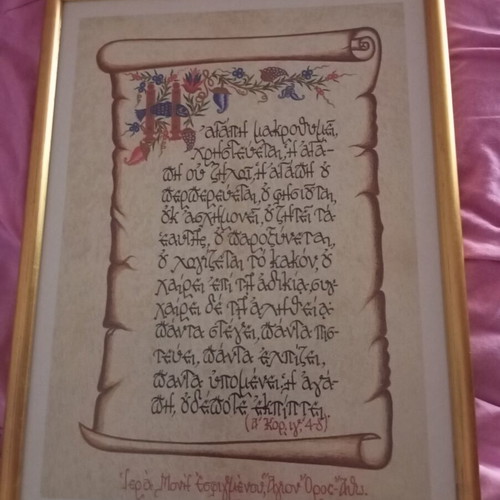 Ἡ ἀγάπη μακροθυμεῖ,
χρηστεύεται, ἡ ἀγά-
πη οὐ ζηλοῖ, ἡ ἀγάπη οὐ
περπερεύεται, οὐ φησιοῦται,
οὐκ ἀσχημονεῖ, οὐ ζητεῖ τὰ
ἑαυτῆς, οὐ παροξύνεται,
οὐ λογίζεται τὸ κακόν, οὐ
χαίρει ἐπὶ τῇ ἀδικίᾳ, συγ-
χαίρει δὲ τῇ ἀληθείᾳ·
πάντα στέγει, πάντα πισ-
τεύει, πάντα ἐλπίζει,
πάντα ὑπομένει. ἡ ἀγά-
πη, οὐδέποτε ἐκπίπτει.
(α΄ Κορ. ιγ΄ 4-8)
Ἱερὰ Μονὴ Ἐσφιγμένου, Ἅγιον Ὄρος-Ἄθω.